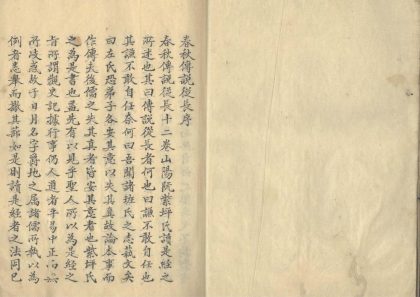 春秋傳說從長序
春秋傳說從長十二卷山陽阮紫坪氏讀是經之
所述也其曰傳說從長者何也曰謙不敢自任也
其謙不敢自任奈何曰吾聞諸班氏之志蓺文矣
曰左氏恐弟子各安其意以失其真故論本事而
作傳夫後儒之失其真者皆安其意者也紫坪氏
之為是書也蓋先有以見乎聖人所以為是經之
旨所謂觀史記據行事仍人道者平易中正而無
所岐惑故于日月名字爵地之屬諸儒所執以為
例者悉舉而撤其蔀如是則讀是經者之法固已